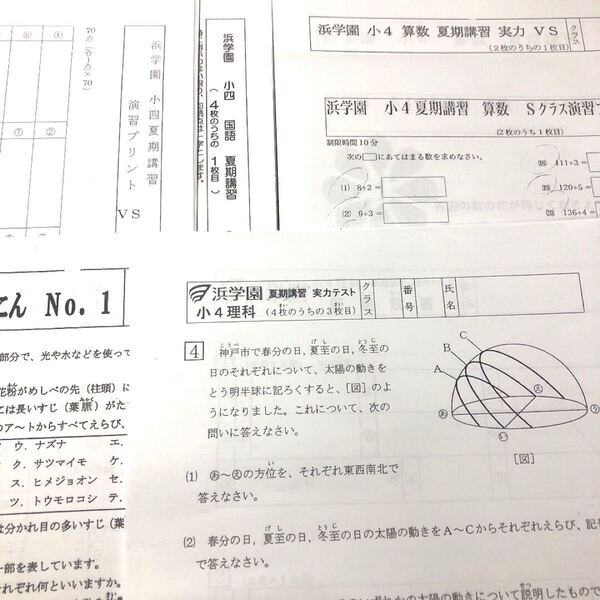 ⑥ ① 70点 (各1点×70)
⑦ ②
浜学園 小四 夏期講習
演習プリント VS
浜学園 小四 国語 夏期講習
(4枚のうちの1枚目)
浜学園 小4 算数 夏期講習 実力 VS クラス
(2枚のうちの1枚目)
浜学園 小4夏期講習 算数 Sクラス演習
(2枚のうち1枚目)
制限時間10分
次の□にあてはまる数を求めなさい。
(1) 8÷2=
(2) 9÷3=
111÷3=
120÷5=
136÷4=
こん No. 1
部分で、光や水などを使って
花粉がめしべの先(柱頭)に
ては長いすじ(葉脈)がた
のア～トからすべてえらび、
ウ．ナズナ エ．
ク．サツマイモ ケ．
ス．ヒメジョオン セ．
ツ．トウモロコシ テ．
は分かれ目の多いすじ(葉
一部を表しています。
それぞれ何といいますか。
浜学園 夏期講習 実力テスト
小4理科 (4枚のうちの3枚目)
クラス 番号 氏名
4 神戸市で春分の日，夏至の日，冬至の
日のそれぞれについて，太陽の動きを
とう明半球に記ろくすると，[図]のよ
うになりました。これについて，次の
問いに答えなさい。
A B C
あ い う え
[図]
(1) あ～えの方位を，それぞれ東西南北で
答えなさい。
(2) 春分の日，夏至の日，冬至の日の太陽の動きをA～Cからそれぞれえらび，記号
で答えなさい。
の太陽の動きについて説明したもので